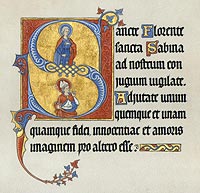 Sancte Florente
sancta Sabina
ad nostrum con
jugium vigilate.
Adjutate unum
quemque et unam
quamque fidei, innocentiae et amoris
imaginem pro altero esse